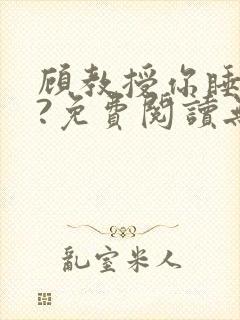 顾教授你睡
?免費閱讀無
亂室米人